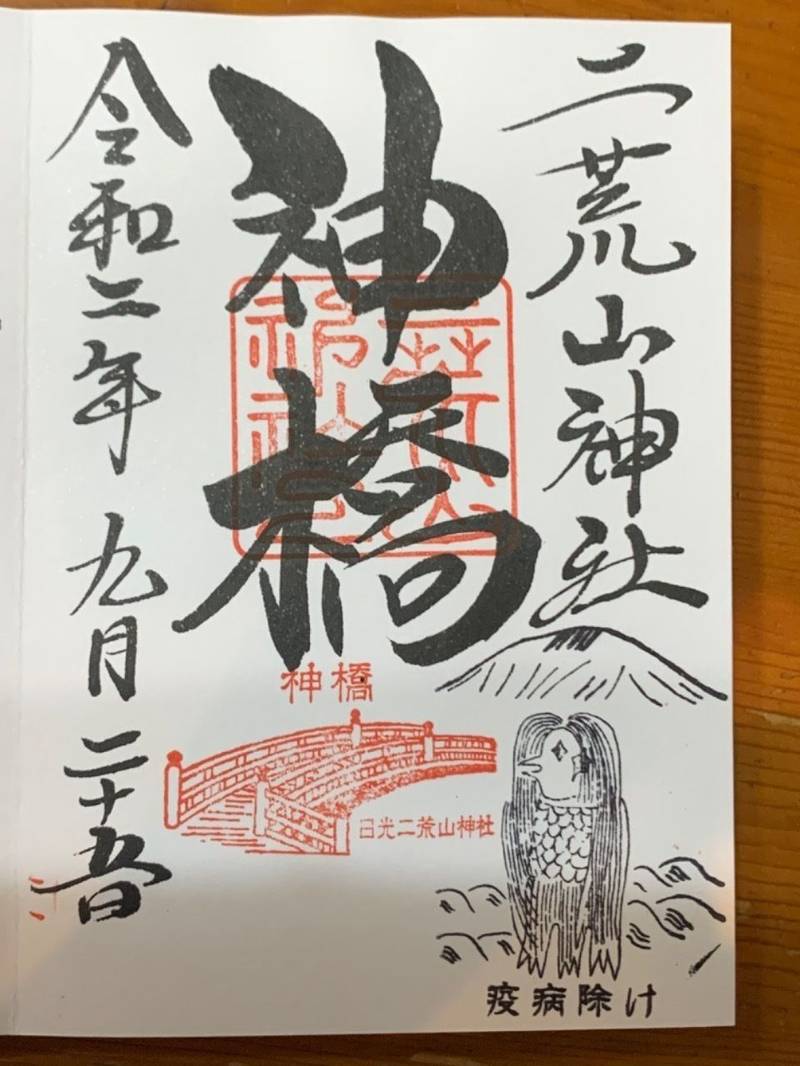 二荒山神社
神橋
令和二年 九月 二十五日
神橋
日光二荒山神社
疫病除け